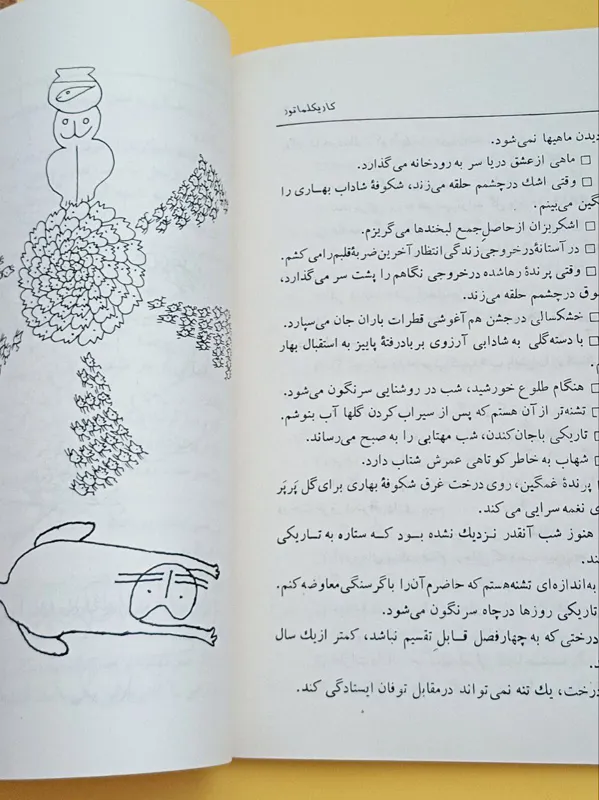 کاریکلماتور
دیدن ماهیها نمی‌شود.
□ ماهی از عشق دریا سر به رودخانه می‌گذارد.
□ وقتی اشك درچشمم حلقه می‌زند، شکوفهٔ شاداب بهاری را
گین می‌بینم.
□ اشکریزان از حاصلِ جمع لبخندها می‌گریزم.
□ در آستانهٔ درخروجی زندگی انتظار آخرین ضربهٔ قلبم را می‌کشم.
□ وقتی پرندهٔ رهاشده درخروجی نگاهم را پشت سر می‌گذارد،
وق درچشمم حلقه می‌زند.
□ خشکسالی درجشن هم‌آغوشی قطرات باران جان می‌سپارد.
□ با دسته‌گلی به شادابی آرزوی بربادرفتهٔ پاییز به استقبال بهار
□ هنگام طلوع خورشید، شب در روشنایی سرنگون می‌شود.
□ تشنه‌تر از آن هستم که پس از سیراب کردن گلها آب بنوشم.
□ تاریکی باجان‌کندن، شب مهتابی را به صبح می‌رساند.
□ شهاب به خاطر کوتاهی عمرش شتاب دارد.
□ پرندهٔ غمگین، روی درخت غرق شکوفهٔ بهاری برای گل پَرپَر
ی نغمه سرایی می‌کند.
هنوز شب آنقدر نزدیك نشده بود که ستاره به تاریکی
ند.
به‌اندازه‌ای تشنه هستم که حاضرم آن‌را با گرسنگی معاوضه کنم.
تاریکی روزها درچاه سرنگون می‌شود.
درختی که به چهارفصل قابل تقسیم نباشد، کمتر ازیك سال
د.
درخت، یك تنه نمی‌تواند درمقابل توفان ایستادگی کند.